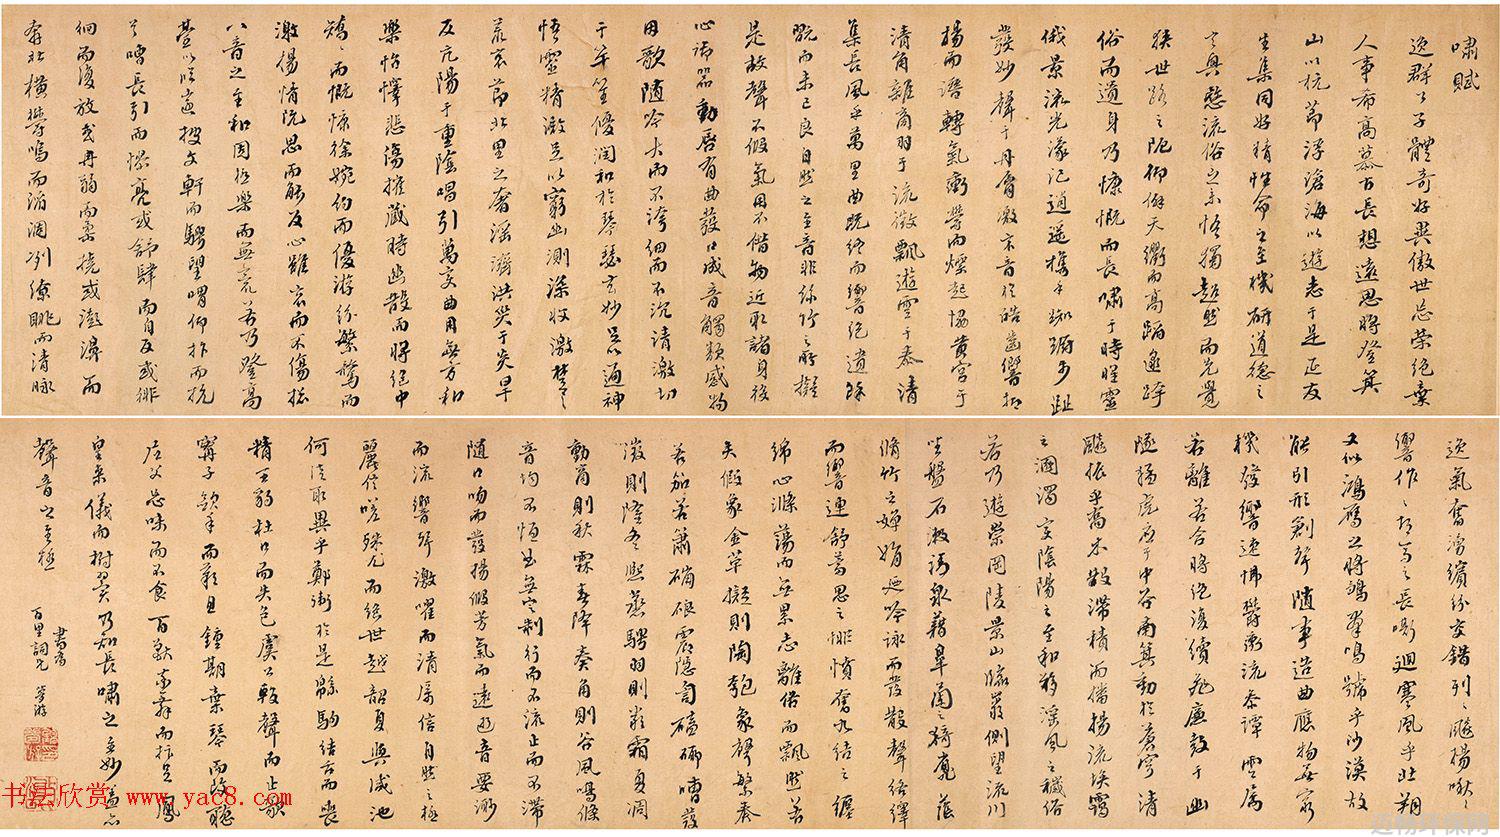 嘯賦
逸群公子體奇好異傲世忘榮絕棄
人事希高慕古長想遠思將登箕
山以抗節浮滄海以遊志于是延友
生集同好精性命之至機研道德之
玄奧愍流俗之未悟獨超然而先覺
狹世路之阨仰俯天衢而高蹈邈跨
俗而遺身乃慷慨而長嘯于時曜靈
俄景流光濛汜逍遙攜手踟躕步趾
發妙聲于丹脣激哀音於皓齒響抑
揚而潛轉氣衝鬱而熛起協黃宮于
清角雜商羽于流徵飄遊雲于泰清
集長風乎萬里曲既終而響絕遺餘
玩而未已良自然之至音非絲竹之所擬
是故聲不假氣用不借物近取諸身役
心御氣動唇有曲發口成音觸類感物
因歌隨吟大而不洿細而不沉清激切
于竽笙優潤和於琴瑟玄妙足以通神
悟靈精微足以窮幽測深收激楚之
荒哀節北里之奢淫濟洪災于炎旱
反亢陽于重陰唱引萬變曲用無方和
樂怡懌悲傷摧藏時幽散而將絕中
矯矯而慨慷徐婉約而優游紛繁騖而
激揚情既思而能反心雖哀而不傷總
八音之至和固極樂而無荒若乃登高
臺以臨遠披文軒而騁望喟仰抃而抗
首嘈長引而憀亮或舒肆而自反或徘
徊而復放或冉弱而柔撓或澎濞而
奔壯橫鬱鳴而滔涸冽繚眺而清昶
逸氣奮湧繽紛交錯列列飈揚啾啾
響作奏胡馬之長嘶迴寒風乎北朔
又似鴻鴈之將鶵羣鳴號乎沙漠故
能引形創聲隨事造曲應物無窮
機發響速怫鬱衝流參譚雲屬
若離若合將絕復續飛廉鼓于幽
隧猛虎應于中谷南箕動於蒼穹清
飈振乎喬木散滯積而播揚流埃靄
之溷濁變陰陽之至和移淫風之穢俗
若乃遊崇岡陵景山臨巖側望流川
坐盤石漱清泉藉皋蘭之猗靡蔭
脩竹之嬋娟乃吟詠而發散聲絡繹
而響連舒蓄思之悱憤奮久結之纏
綿心滌蕩而無累志離俗而飄然若
夫假象金革擬則陶匏衆聲繁奏
若笳若簫硼硠震隱訇磕嘈發
徵則隆冬熙蒸騁羽則嚴霜夏凋
動商則秋霖春降奏角則谷風鳴條
音均不恆曲無定制行而不流止而不滯
隨口吻而發揚假芳氣而遠逝音要妙
而流響聲激嚁而清厲信自然之極
麗羌殊尤而絕世越韶夏與咸池
何徒取異乎鄭衛於是緜駒結舌而喪
精王豹杜口而失色虞公輟聲而止歌
甯子斂手而歎息鍾期棄琴而改聽
尼父忘味而不食百獸率舞而抃足鳳
皇來儀而拊翼乃知長嘯之奇妙蓋亦
聲音之至極
書為
百里詞兄
书法欣赏 www.yac8.com